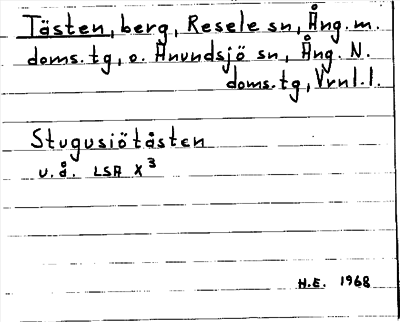 Tåsten, berg, Resele sn, Ång. m.
doms.tg, o. Anundsjö sn, Ång. N.
doms.tg, Vrnl.l.
Stugusjötåsten
u.å. LSA X³
H.E. 1968